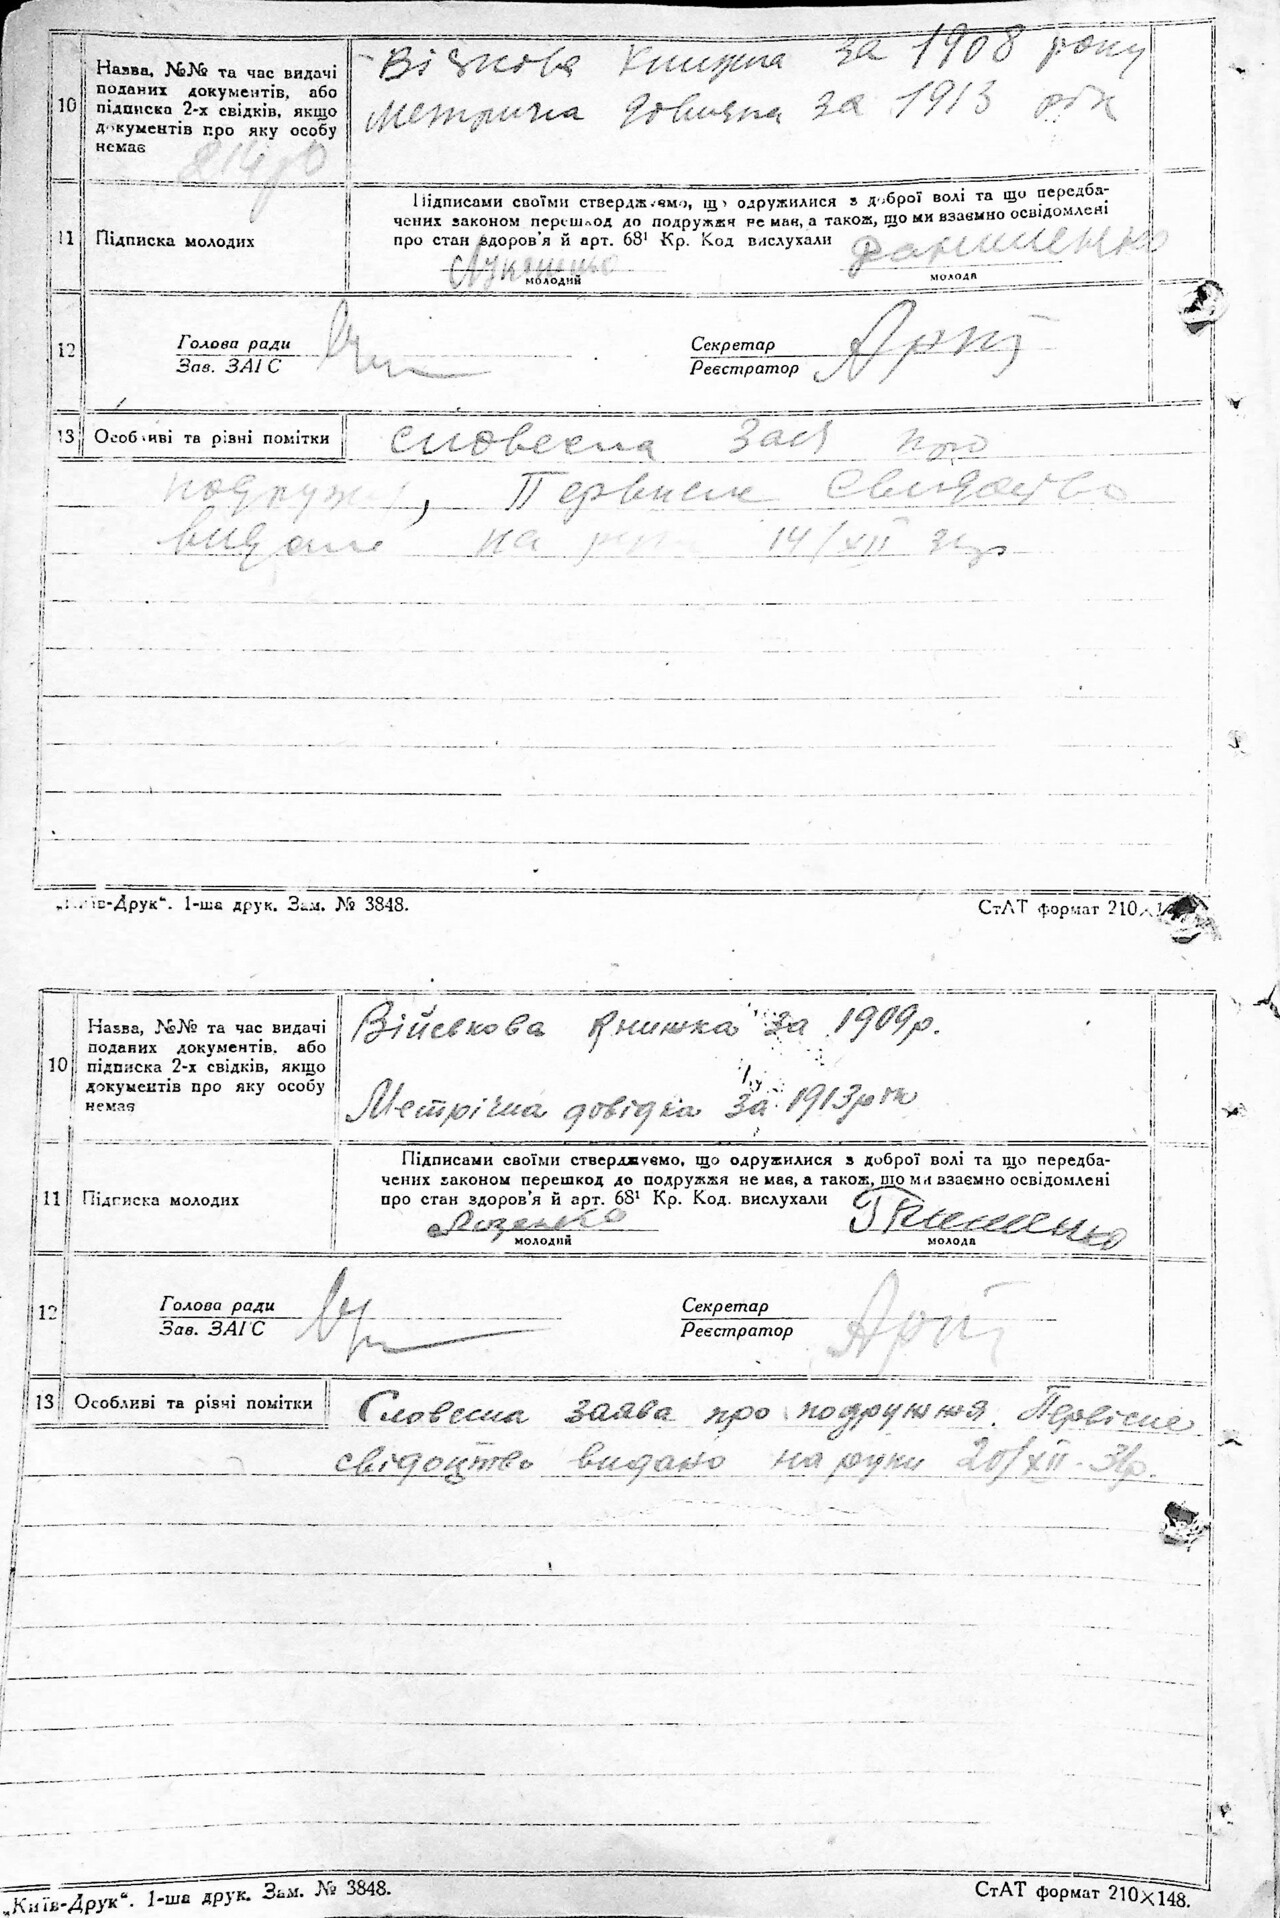 10
Назва, №№ та час видачі
поданих документів, або
підписка 2-х свідків, якщо
документів про яку особу
немає
Візкова Книжка за 1908 року
Метрична довидка за 1913 рік
11
Підписка молодих
Підписами своїми стверджуємо, що одружилися з доброї волі та що передба-
чених законом перешкод до подружжя не має, а також, що ми взаємно освідомлені
про стан здоров'я й арт. 68¹ Кр. Код вислухали
молодий
молода
12
Голова ради
Зав. ЗАГС
Секретар
Реєстратор
13
Особливі та різні помітки
словесна заяв про
подружжя, Первисне Свидоцтво
видане на руки 14/XII 31р
„Київ-Друк“. 1-ша друк. Зам. № 3848.
СтАТ формат 210×1
10
Назва, №№ та час видачі
поданих документів, або
підписка 2-х свідків, якщо
документів про яку особу
немає
Військова книжка за 1909р.
Метрічна довідка за 1913рік
11
Підписка молодих
Підписами своїми стверджуємо, що одружилися з доброї волі та що передба-
чених законом перешкод до подружжя не має, а також, що ми взаємно освідомлені
про стан здоров'я й арт. 68¹ Кр. Код. вислухали
молодий
молода
12
Голова ради
Зав. ЗАГС
Секретар
Реєстратор
13
Особливі та різні помітки
Словесна заява про подружжя. Первісне
свідоцтво видано на руки 20/XII-31р.
„Київ-Друк“. 1-ша друк. Зам. № 3848.
СтАТ формат 210×148.